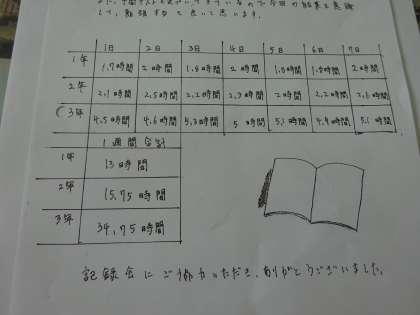 して、勉強すると良いと思います。
1日 2日 3日 4日 5日 6日 7日
1年 1.7時間 2時間 1.8時間 2時間 1.8時間 1.8時間 2時間
2年 2.1時間 2.5時間 2.2時間 2.3時間 2時間 2.2時間
3年 4.5時間 4.6時間 5.3時間 5時間 5.1時間 4.9時間 5.1時間
1週間合計
1年 13時間
2年 15.75時間
3年 34.75時間
記録会にご協力いただき、ありがとうございました。